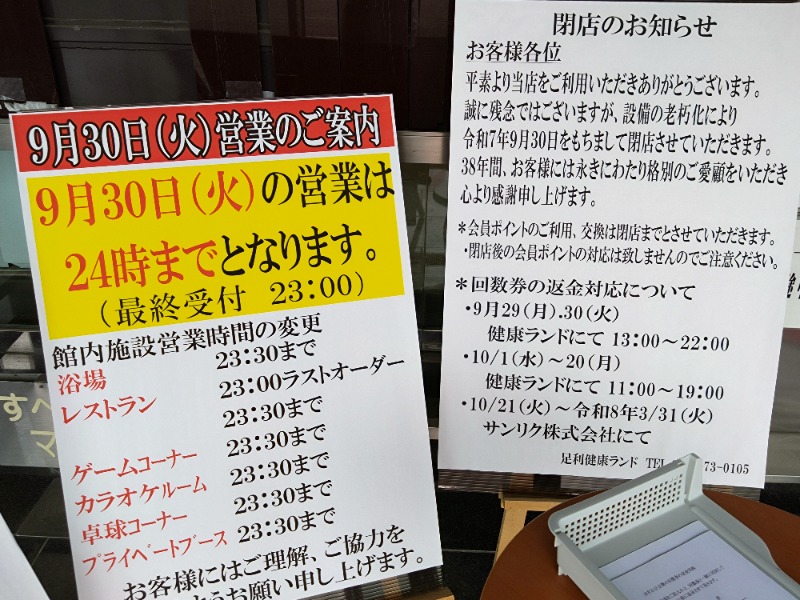 9月30日(火)営業のご案内
9月30日(火)の営業は
24時までとなります。
(最終受付 23:00)
館内施設営業時間の変更
浴場 23:30まで
レストラン 23:00ラストオーダー
23:30まで
ゲームコーナー 23:30まで
カラオケルーム 23:30まで
卓球コーナー 23:30まで
プライベートブース 23:30まで
お客様にはご理解、ご協力を
お願い申し上げます。
閉店のお知らせ
お客様各位
平素より当店をご利用いただきありがとうございます。
誠に残念ではございますが、設備の老朽化により
令和7年9月30日をもちまして閉店させていただきます。
38年間、お客様には永きにわたり格別のご愛顧をいただき
心より感謝申し上げます。
*会員ポイントのご利用、交換は閉店までとさせていただきます。
・閉店後の会員ポイントの対応は致しませんのでご注意ください。
*回数券の返金対応について
・9月29(月).30(火)
健康ランドにて 13:00～22:00
・10/1(水)～20(月)
健康ランドにて 11:00～19:00
・10/21(火)～令和8年3/31(火)
サンリク株式会社にて
足利健康ランド TEL 73-0105